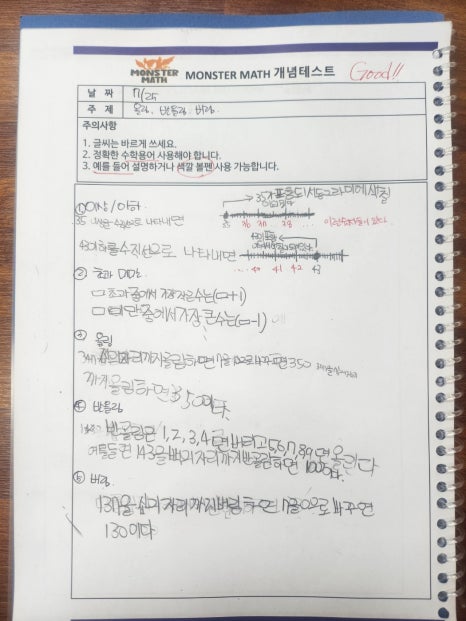 MONSTER MATH
MONSTER MATH 개념테스트 Good!!
날 짜 7/25
주 제 올림, 반올림, 버림
주의사항
1. 글씨는 바르게 쓰세요.
2. 정확한 수학용어 사용해야 합니다.
3. 예를 들어 설명하거나 색깔 볼펜 사용 가능합니다.
① 이상/이하
35 수직선으로 나타내면
35 36 37 38 ...
43이하를 수직선으로 나타내면
... 40 41 42 43
② 초과 미만
□초과 중에서 가장 작은수는(□+1)
□미만 중에서 가장 큰수는(□-1)
③ 올림
자리까지 올림하면 7을 바꾸면 350
까지 올림하면 350이다
④ 반올림
반올림은 0, 1, 2, 3, 4면 버리고 5, 6, 7, 8, 9면 올린다
예를들면 143을 백의 자리까지 반올림하면 100이다.
⑤ 버림
137을 십의 자리까지 버림하면 7을 0으로 바꾸면
130이다